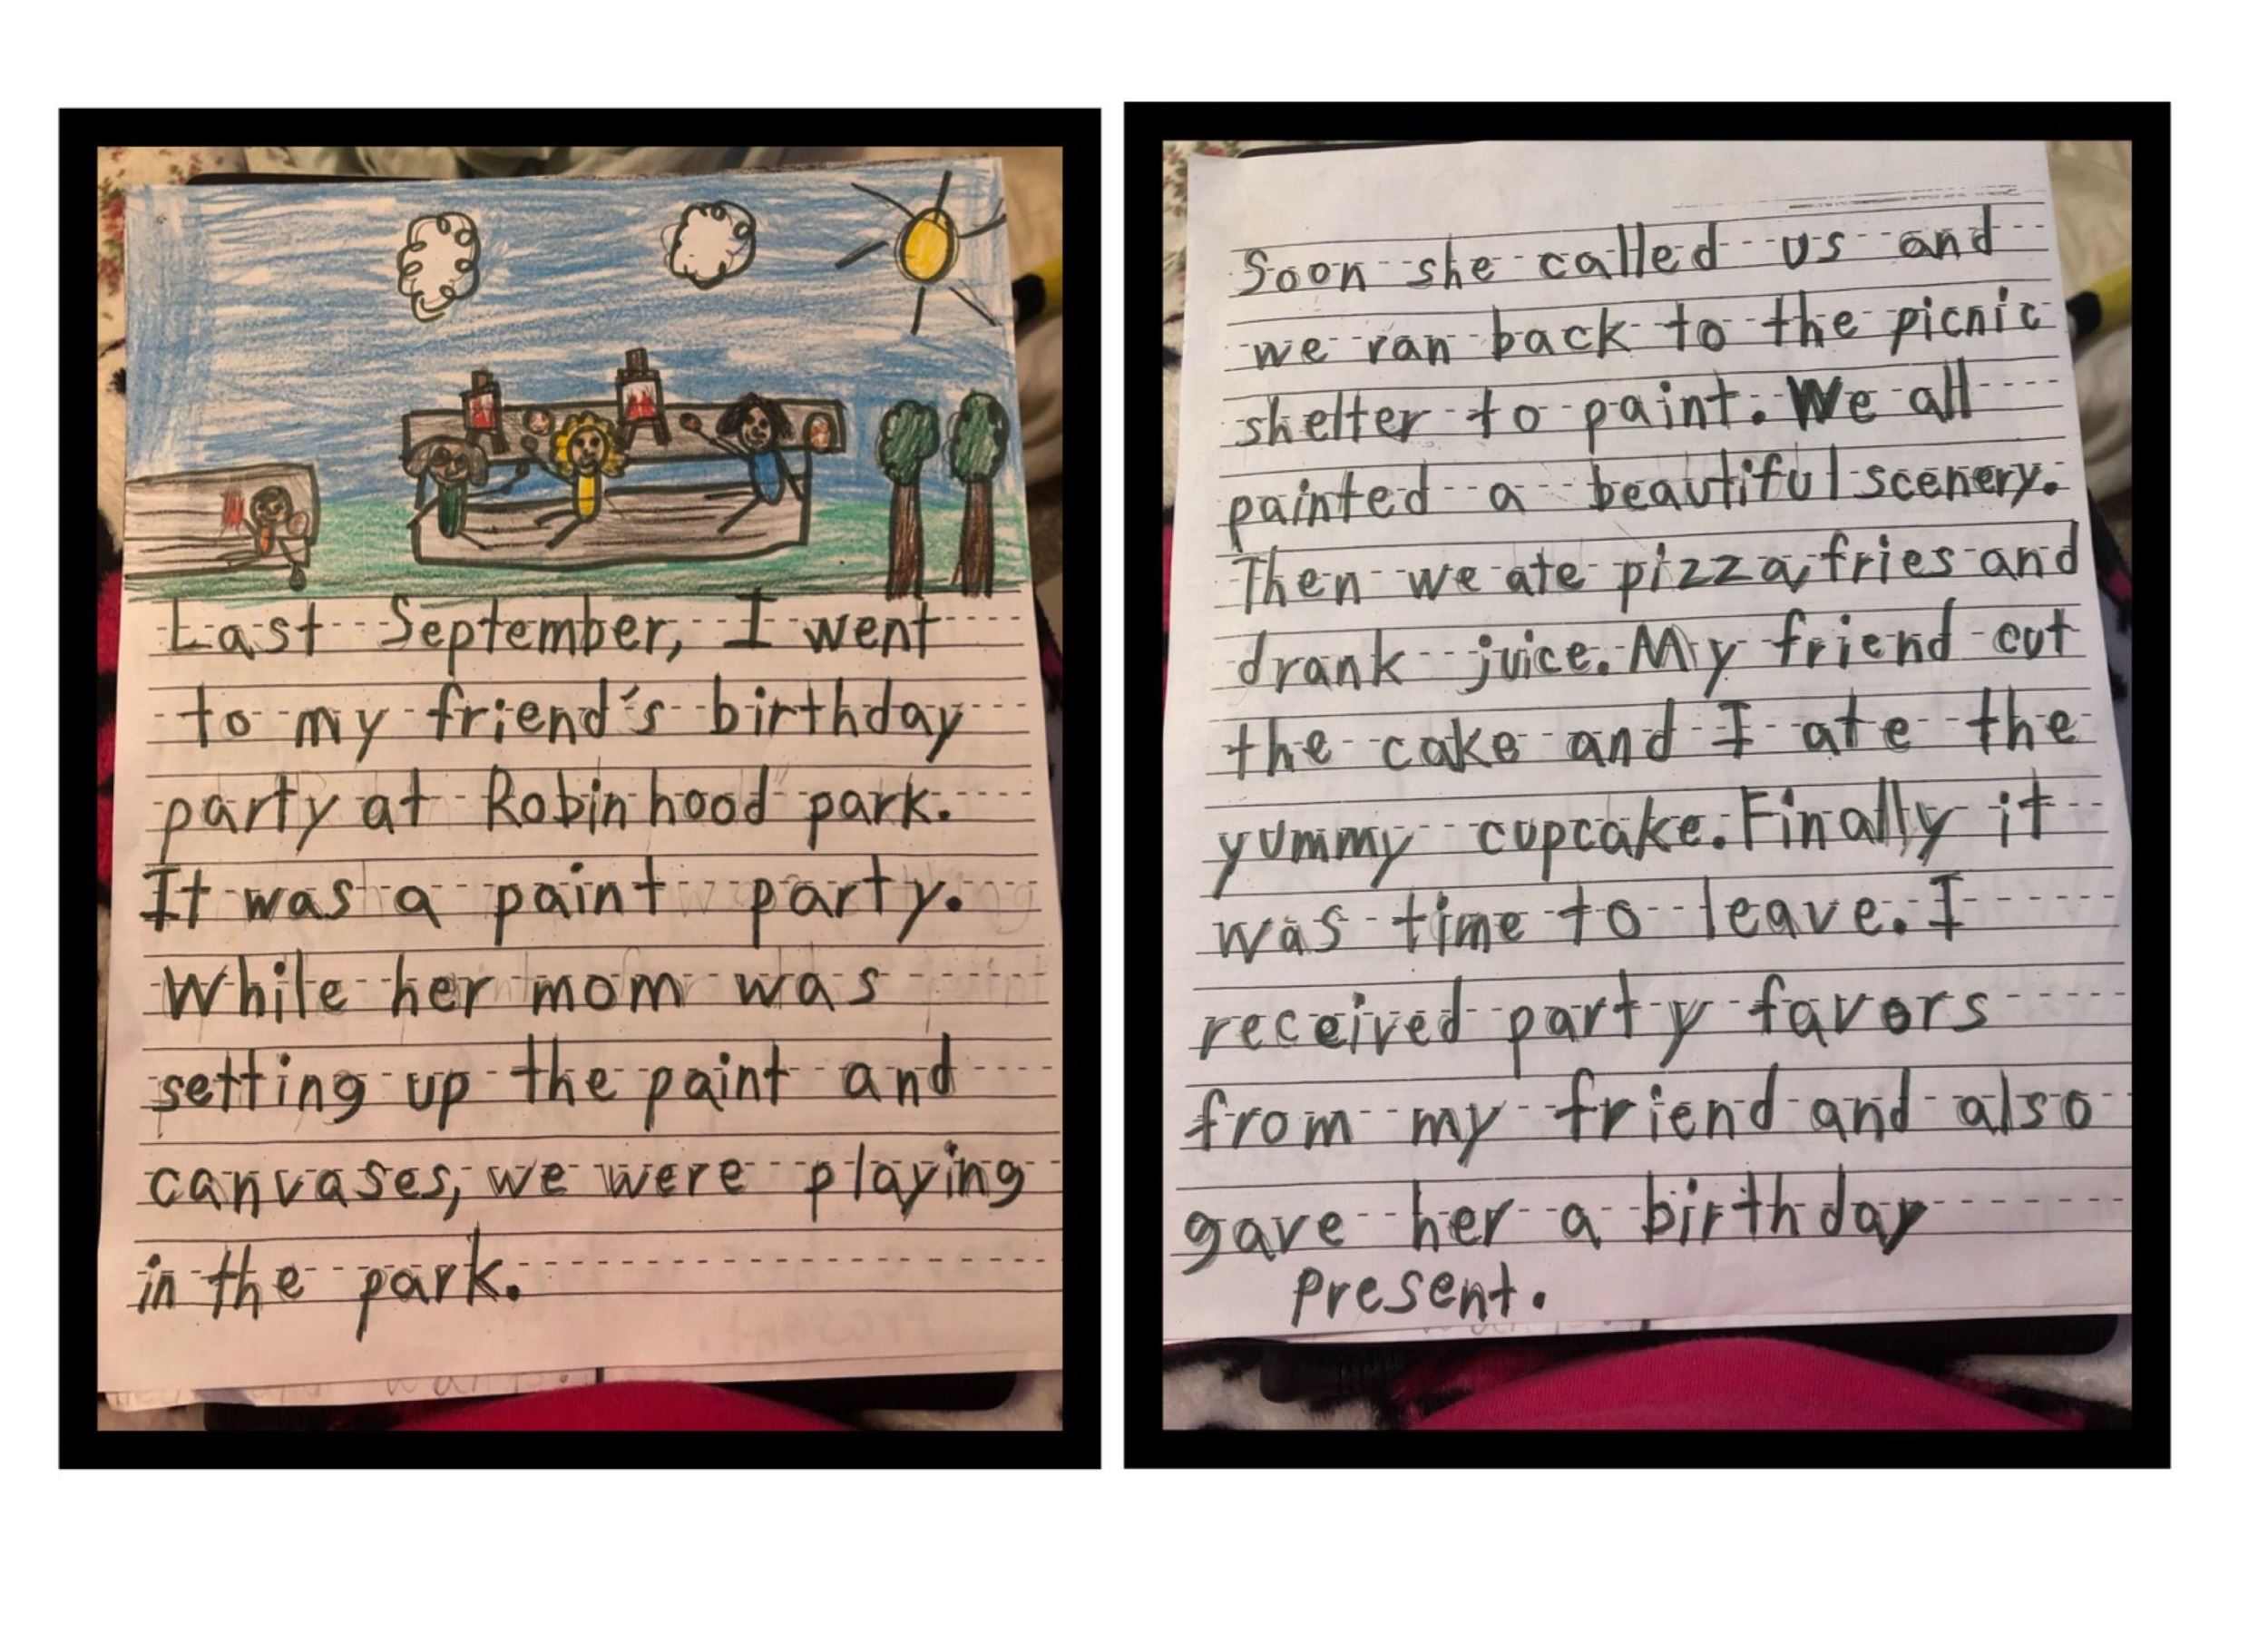 Last September, I went
to my friend's birthday
party at Robinhood park.
It was a paint party.
While her mom was
setting up the paint and
canvases, we were playing
in the park.
Soon she called us and
we ran back to the picnic
shelter to paint. We all
painted a beautiful scenery.
Then we ate pizza, fries and
drank juice. My friend cut
the cake and I ate the
yummy cupcake. Finally it
was time to leave. I
received party favors
from my friend and also
gave her a birthday
present.